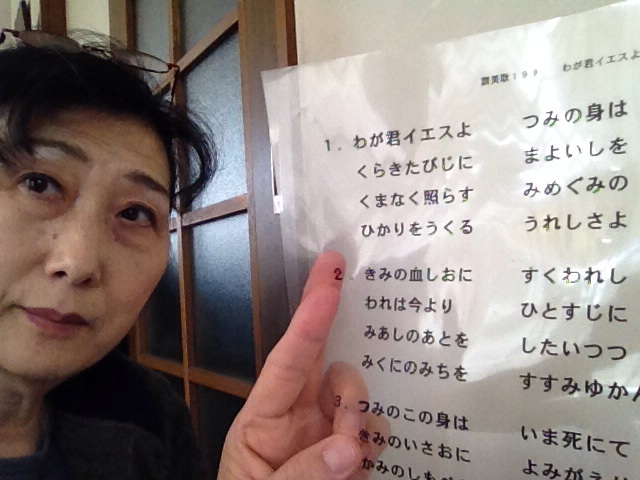 讃美歌199 わが君イエスよ
1. わが君イエスよ つみの身は
くらきたびじに まよいしを
くまなく照らす みめぐみの
ひかりをうくる うれしさよ
2. きみの血しおに すくわれし
われは今より ひとすじに
みあしのあとを したいつつ
みくにのみちを すすみゆかん
3. つみのこの身は いま死にて
きみのいさおに よみがえり